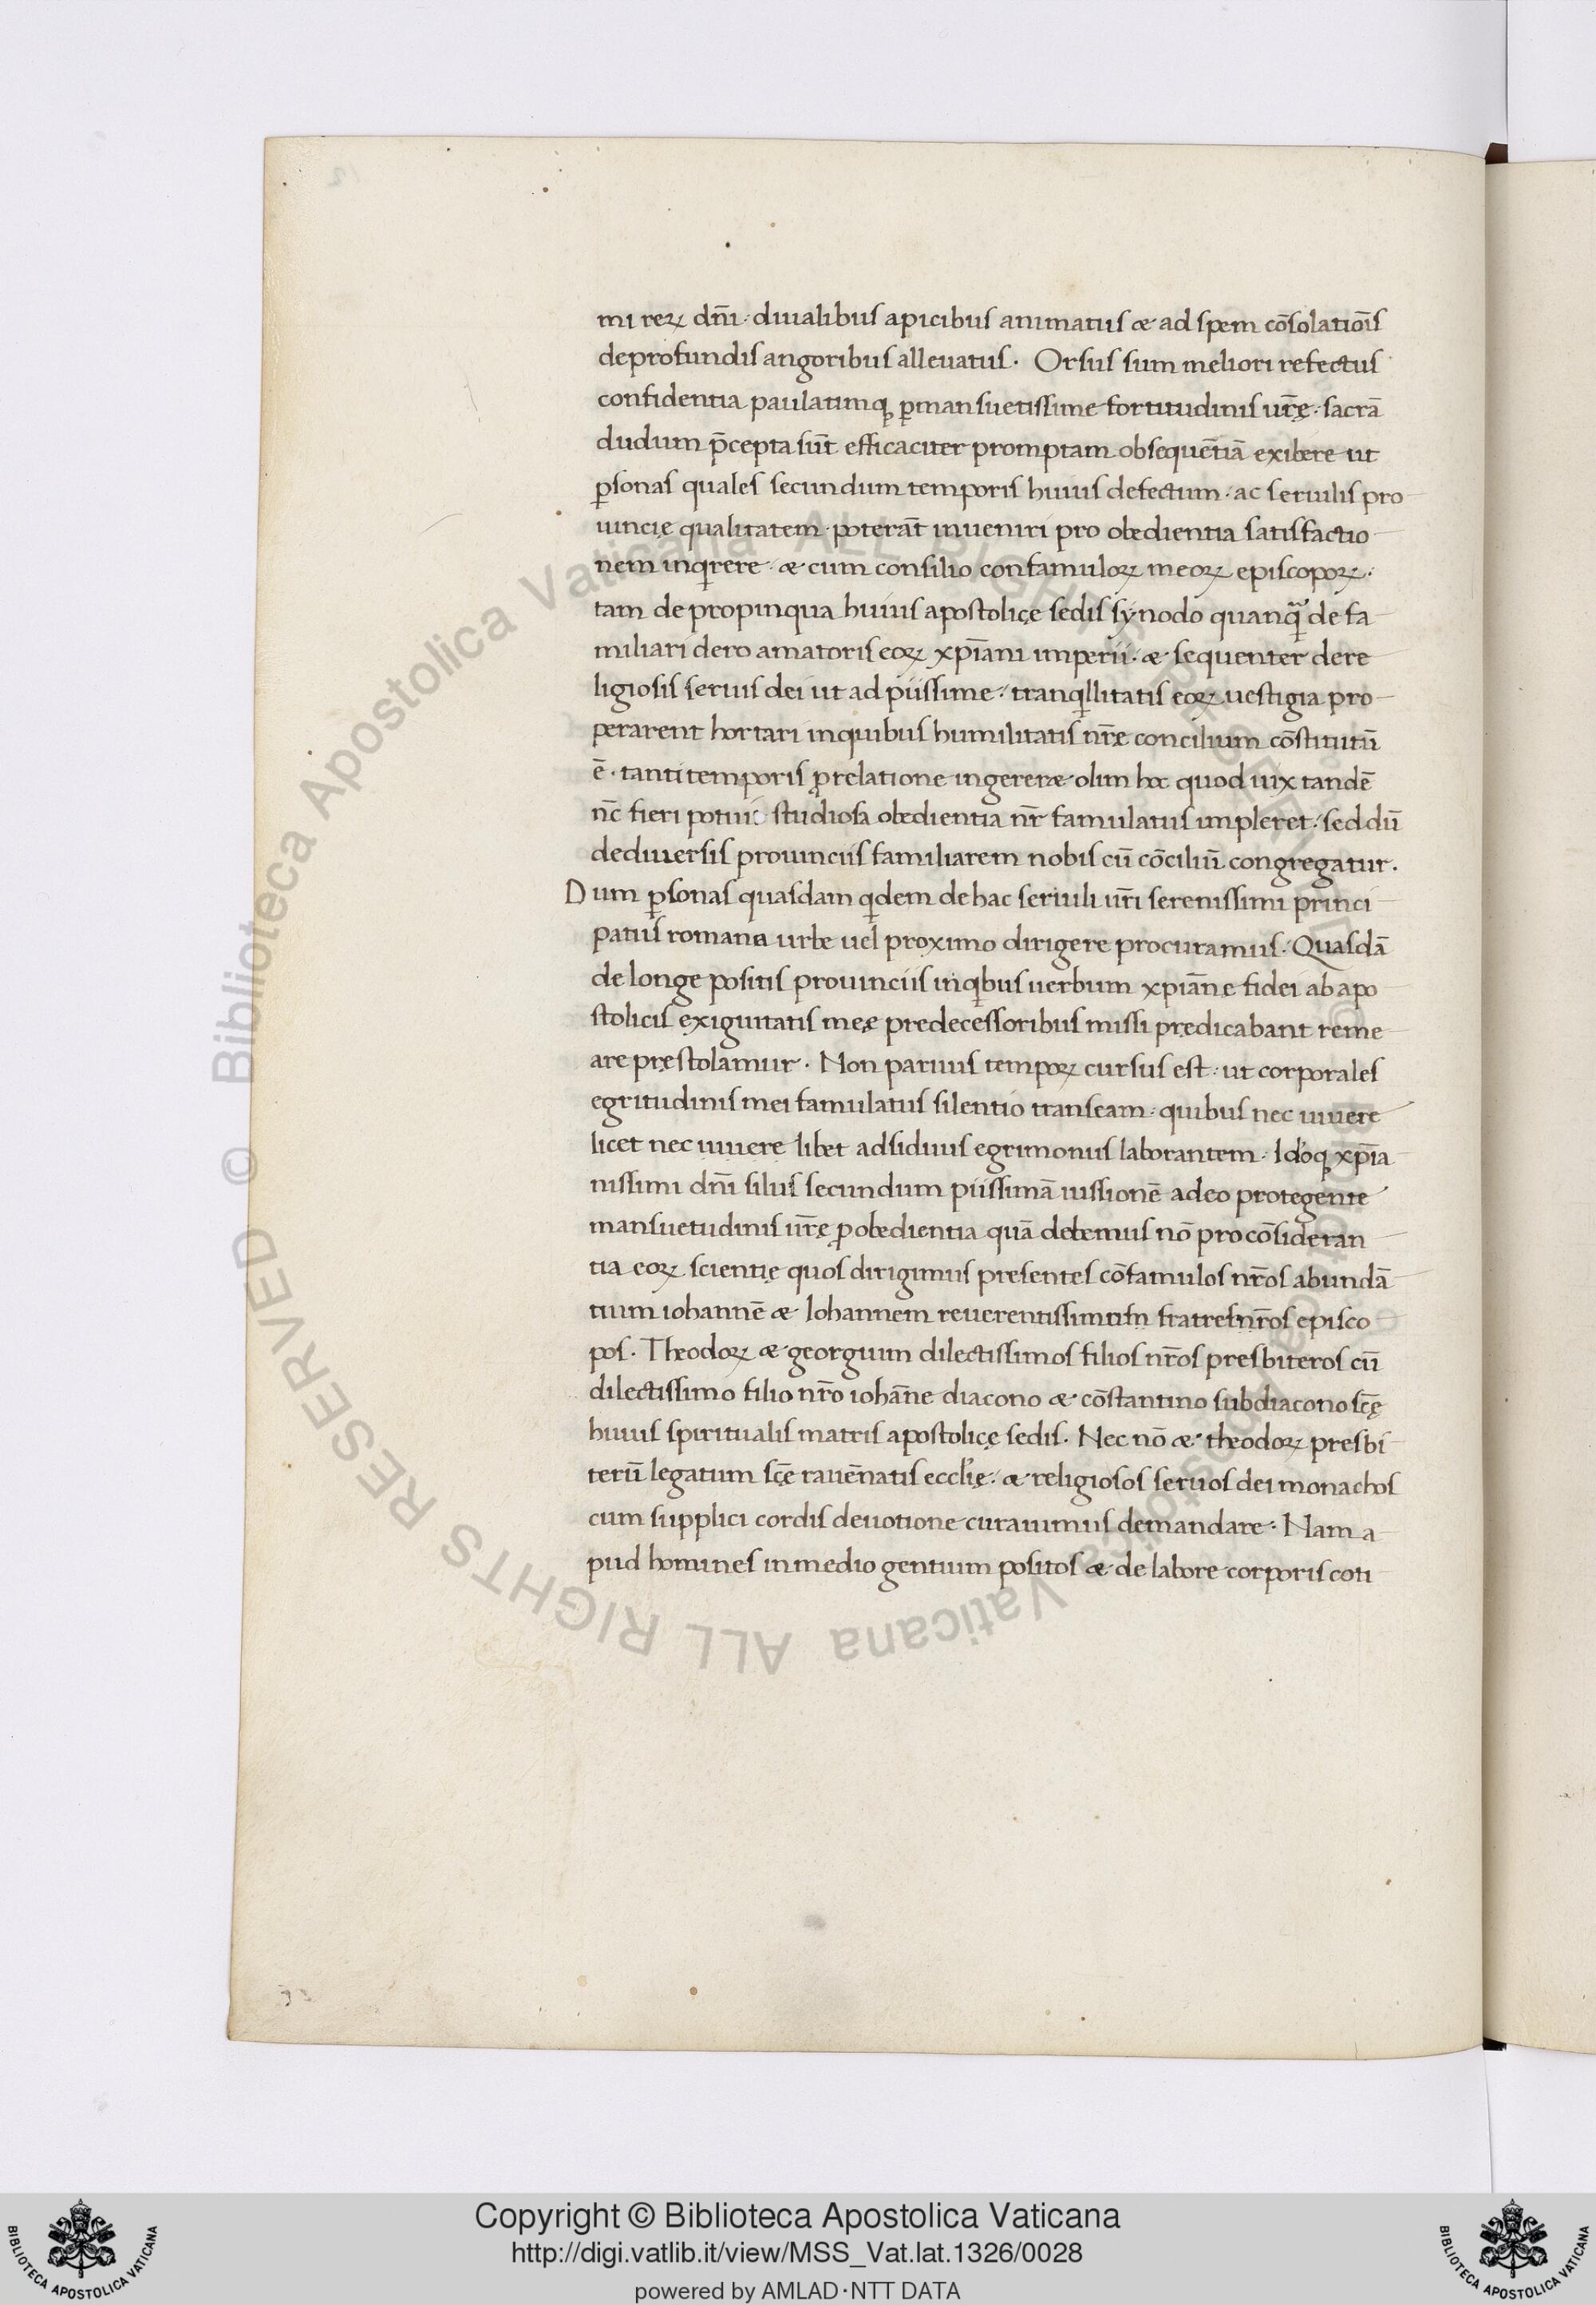 mi reꝝ dn̄i · diualibus apicibus animatus & ad spem cōsolatiōis
deprofundis angoribus alleuatus · Orsus sum meliori refectus
confidentia paulatimq; ꝑmansuetissime fortitudinis ur̄ę · sacrā
dudum p̄cepta sūt efficaciter promptam obsequētiā exibere ut
ꝑsonas quales secundum temporis huius defectum · ac seruilis pro
uincię qualitatem · poterāt inueniri pro obedientia satisfactio
nem inqͥrere · & cum consilio confamuloꝝ meoꝝ episcopoꝝ ·
tam de propinqua huius apostolicę sedis synodo quanqͣ de fa
miliari clero amatoris eoꝝ xp̄iani imperii · & sequenter dere
ligiosis seruis dei ut ad piissime · tranqͥllitatis eoꝝ uestigia pro
perarent hortari inquibus humilitatis nr̄ę concilium cōstitutū
ē · tanti temporis p̱relatione ingerer& olim hoc quod uix tandē
nc̄ fieri potuit studiosa obedientia nr̄ famulatus impleret · sed dū
dediuersis prouinciis familiarem nobis cū cōciliū congregatur ·
Dum ꝑsonas quasdam qͥdem de hac seruili ur̄i serenissimi princi
patus romana urbe uel proximo dirigere procuramus · Quasdā
de longe positis prouinciis inqͥbus uerbum xpiānę fidei ab apo
stolicis exiguitatis meę predecessoribus missi prędicabant reme
are pręstolamur · Non paruus tempoꝝ cursus est · ut corporales
egritudinis mei famulatus silentio transeam · quibus nec uiuere
licet nec uiuere libet adsiduis egrimoniis laborantem · Idoq; xp̄ia
nissimi dn̄i silus secundum piissimā iussionē adeo protegente
mansuetudinis ur̄ę ꝓobedientia quā debemus nō pro cōsideran
tia eoꝝ scientię quos dirigimus presentes cōfamulos nr̄os abundā
tium iohannē & Iohannem reuerentissimum fratres nr̄os episco
pos · Theodoꝝ & georgium dilectissimos filios nr̄os presbiteros cū
dilectissimo filio nr̄o iohāne diacono & cōstantino subdiacono sc̄ę
huius spiritualis matris apostolicę sedis · Nec nō & theodoꝝ presbi
terū legatum sc̄ę rauēnatis eccl'ię · & religiosos seruos dei monachos
cum supplici cordis deuotione curauimus demandare · Nam a
pud homines in medio gentium positos & de labore corporis coti
© Biblioteca Apostolica Vaticana ALL RIGHTS RESERVED
Copyright © Biblioteca Apostolica Vaticana
http://digi.vatlib.it/view/MSS_Vat.lat.1326/0028
powered by AMLAD·NTT DATA
BIBLIOTECA APOSTOLICA VATICANA
BIBLIOTECA APOSTOLICA VATICANA